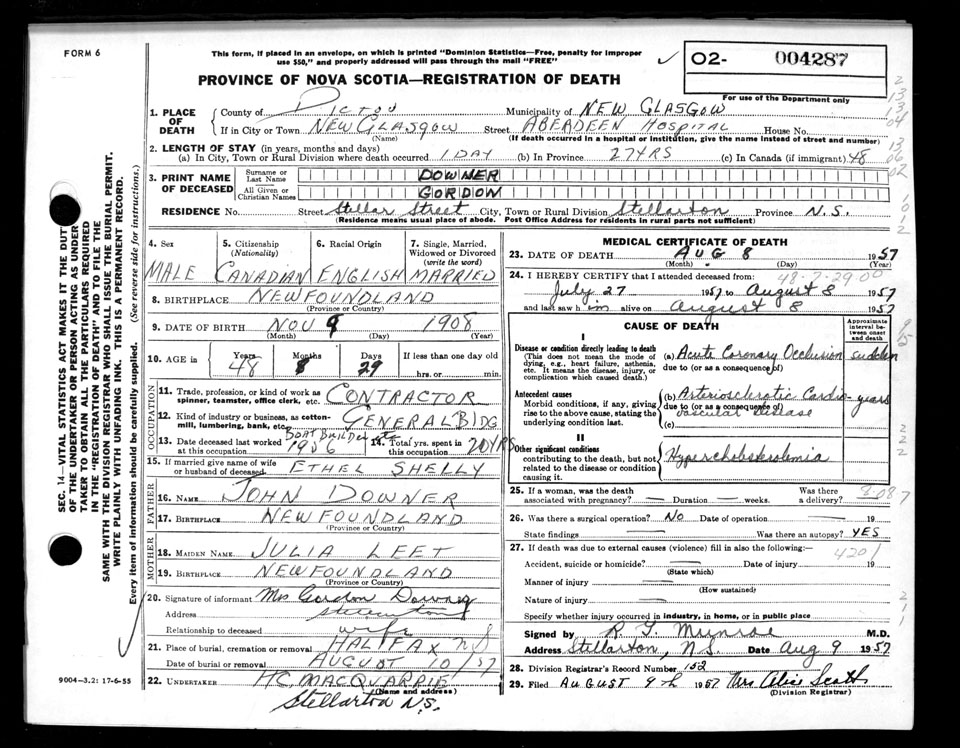 FORM 6
This form, if placed in an envelope, on which is printed "Dominion Statistics—Free, penalty for improper
use $50," and properly addressed will pass through the mail "FREE"
PROVINCE OF NOVA SCOTIA—REGISTRATION OF DEATH
O2- 004287
For use of the Department only
1. PLACE OF DEATH
County of PICTOU Municipality of NEW GLASGOW
If in City or Town NEW GLASGOW Street ABERDEEN HOSPITAL House No.
(Name) (If death occurred in a hospital or institution, give the name instead of street and number)
2. LENGTH OF STAY (in years, months and days)
(a) In City, Town or Rural Division where death occurred 1 DAY (b) In Province 27 YRS (c) In Canada (if immigrant) 48
3. PRINT NAME OF DECEASED
Surname or Last Name DOWNER
All Given or Christian Names GORDON
RESIDENCE No. Street Stellar Street City, Town or Rural Division Stellarton Province N.S.
(Residence means usual place of abode. Post Office Address for residents in rural parts not sufficient)
4. Sex MALE
5. Citizenship (Nationality) CANADIAN
6. Racial Origin ENGLISH
7. Single, Married, Widowed or Divorced (write the word) MARRIED
8. BIRTHPLACE NEWFOUNDLAND
(Province or Country)
9. DATE OF BIRTH NOV 9 1908
(Month) (Day) (Year)
10. AGE IN Years 48 Months 8 Days 29 If less than one day old
hrs. or min.
OCCUPATION
11. Trade, profession or kind of work as spinner, teamster, office clerk, etc. CONTRACTOR
12. Kind of industry or business, as cotton-mill, lumbering, bank, etc. GENERAL BLDG
BOAT BUILDER etc
13. Date deceased last worked at this occupation 1956
14. Total yrs. spent in this occupation 20 YRS
15. If married give name of wife or husband of deceased ETHEL SHELLY
FATHER
16. NAME JOHN DOWNER
17. BIRTHPLACE NEWFOUNDLAND
(Province or Country)
MOTHER
18. MAIDEN NAME JULIA LEET
19. BIRTHPLACE NEWFOUNDLAND
(Province or Country)
20. Signature of informant Mrs Gordon Downer
Address Stellarton
Relationship to deceased wife
21. Place of burial, cremation or removal HALIFAX NS
Date of burial or removal AUGUST 10/57
22. UNDERTAKER H.C. MACQUARRIE
(Name and address)
Stellarton N.S.
9004-3.2: 17-6-55
SEC. 14—VITAL STATISTICS ACT MAKES IT THE DUTY
OF THE UNDERTAKER OR PERSON ACTING AS UNDER
TAKER TO OBTAIN ALL THE PARTICULARS REQUIRED
IN THE "REGISTRATION OF DEATH" AND TO FILE THE
SAME WITH THE DIVISION REGISTRAR WHO SHALL ISSUE THE BURIAL PERMIT.
WRITE PLAINLY WITH UNFADING INK. THIS IS A PERMANENT RECORD.
Every item of information should be carefully supplied. (See reverse side for instructions.)
MEDICAL CERTIFICATE OF DEATH
23. DATE OF DEATH AUG 8 1957
(Month) (Day) (Year)
24. I HEREBY CERTIFY that I attended deceased from:
July 27 1957 to August 8 1957
and last saw him alive on August 8 1957
CAUSE OF DEATH
Approximate interval between onset and death
I
Disease or condition directly leading to death
(This does not mean the mode of dying, e.g., heart failure, asthenia, etc. It means the disease, injury, or complication which caused death.)
(a) Acute Coronary Occlusion sudden
due to (or as a consequence of)
Antecedent causes
Morbid conditions, if any, giving rise to the above cause, stating the underlying condition last.
(b) Arteriosclerotic Cardio- years
due to (or as a consequence of)
vascular disease
(c)
II
Other significant conditions
contributing to the death, but not related to the disease or condition causing it.
Hypercholesterolemia
25. If a woman, was the death associated with pregnancy? Duration weeks. Was there a delivery?
26. Was there a surgical operation? NO Date of operation 19
State findings Was there an autopsy? YES
27. If death was due to external causes (violence) fill in also the following:—
4201
Accident, suicide or homicide? Date of injury 19
(State which)
Manner of injury
(How sustained)
Nature of injury
Specify whether injury occurred in industry, in home, or in public place
Signed by R. G. Munroe M.D.
Address Stellarton, N.S. Date Aug 9 1957
28. Division Registrar's Record Number 152
29. Filed AUGUST 9th 1957 Mrs Alice Scott
(Division Registrar)